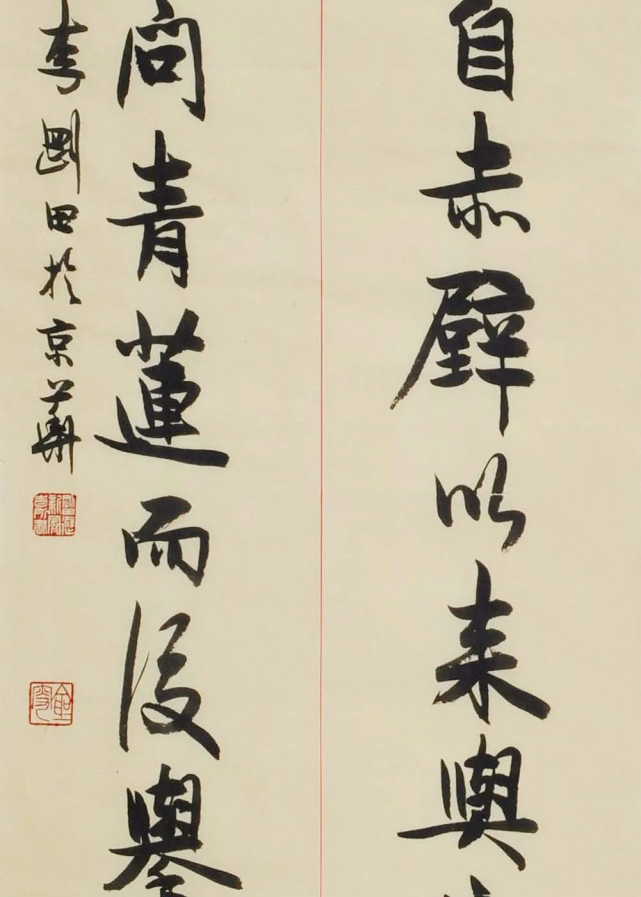 自赤壁以来與
問青蓮而後舉
李剛田於京華